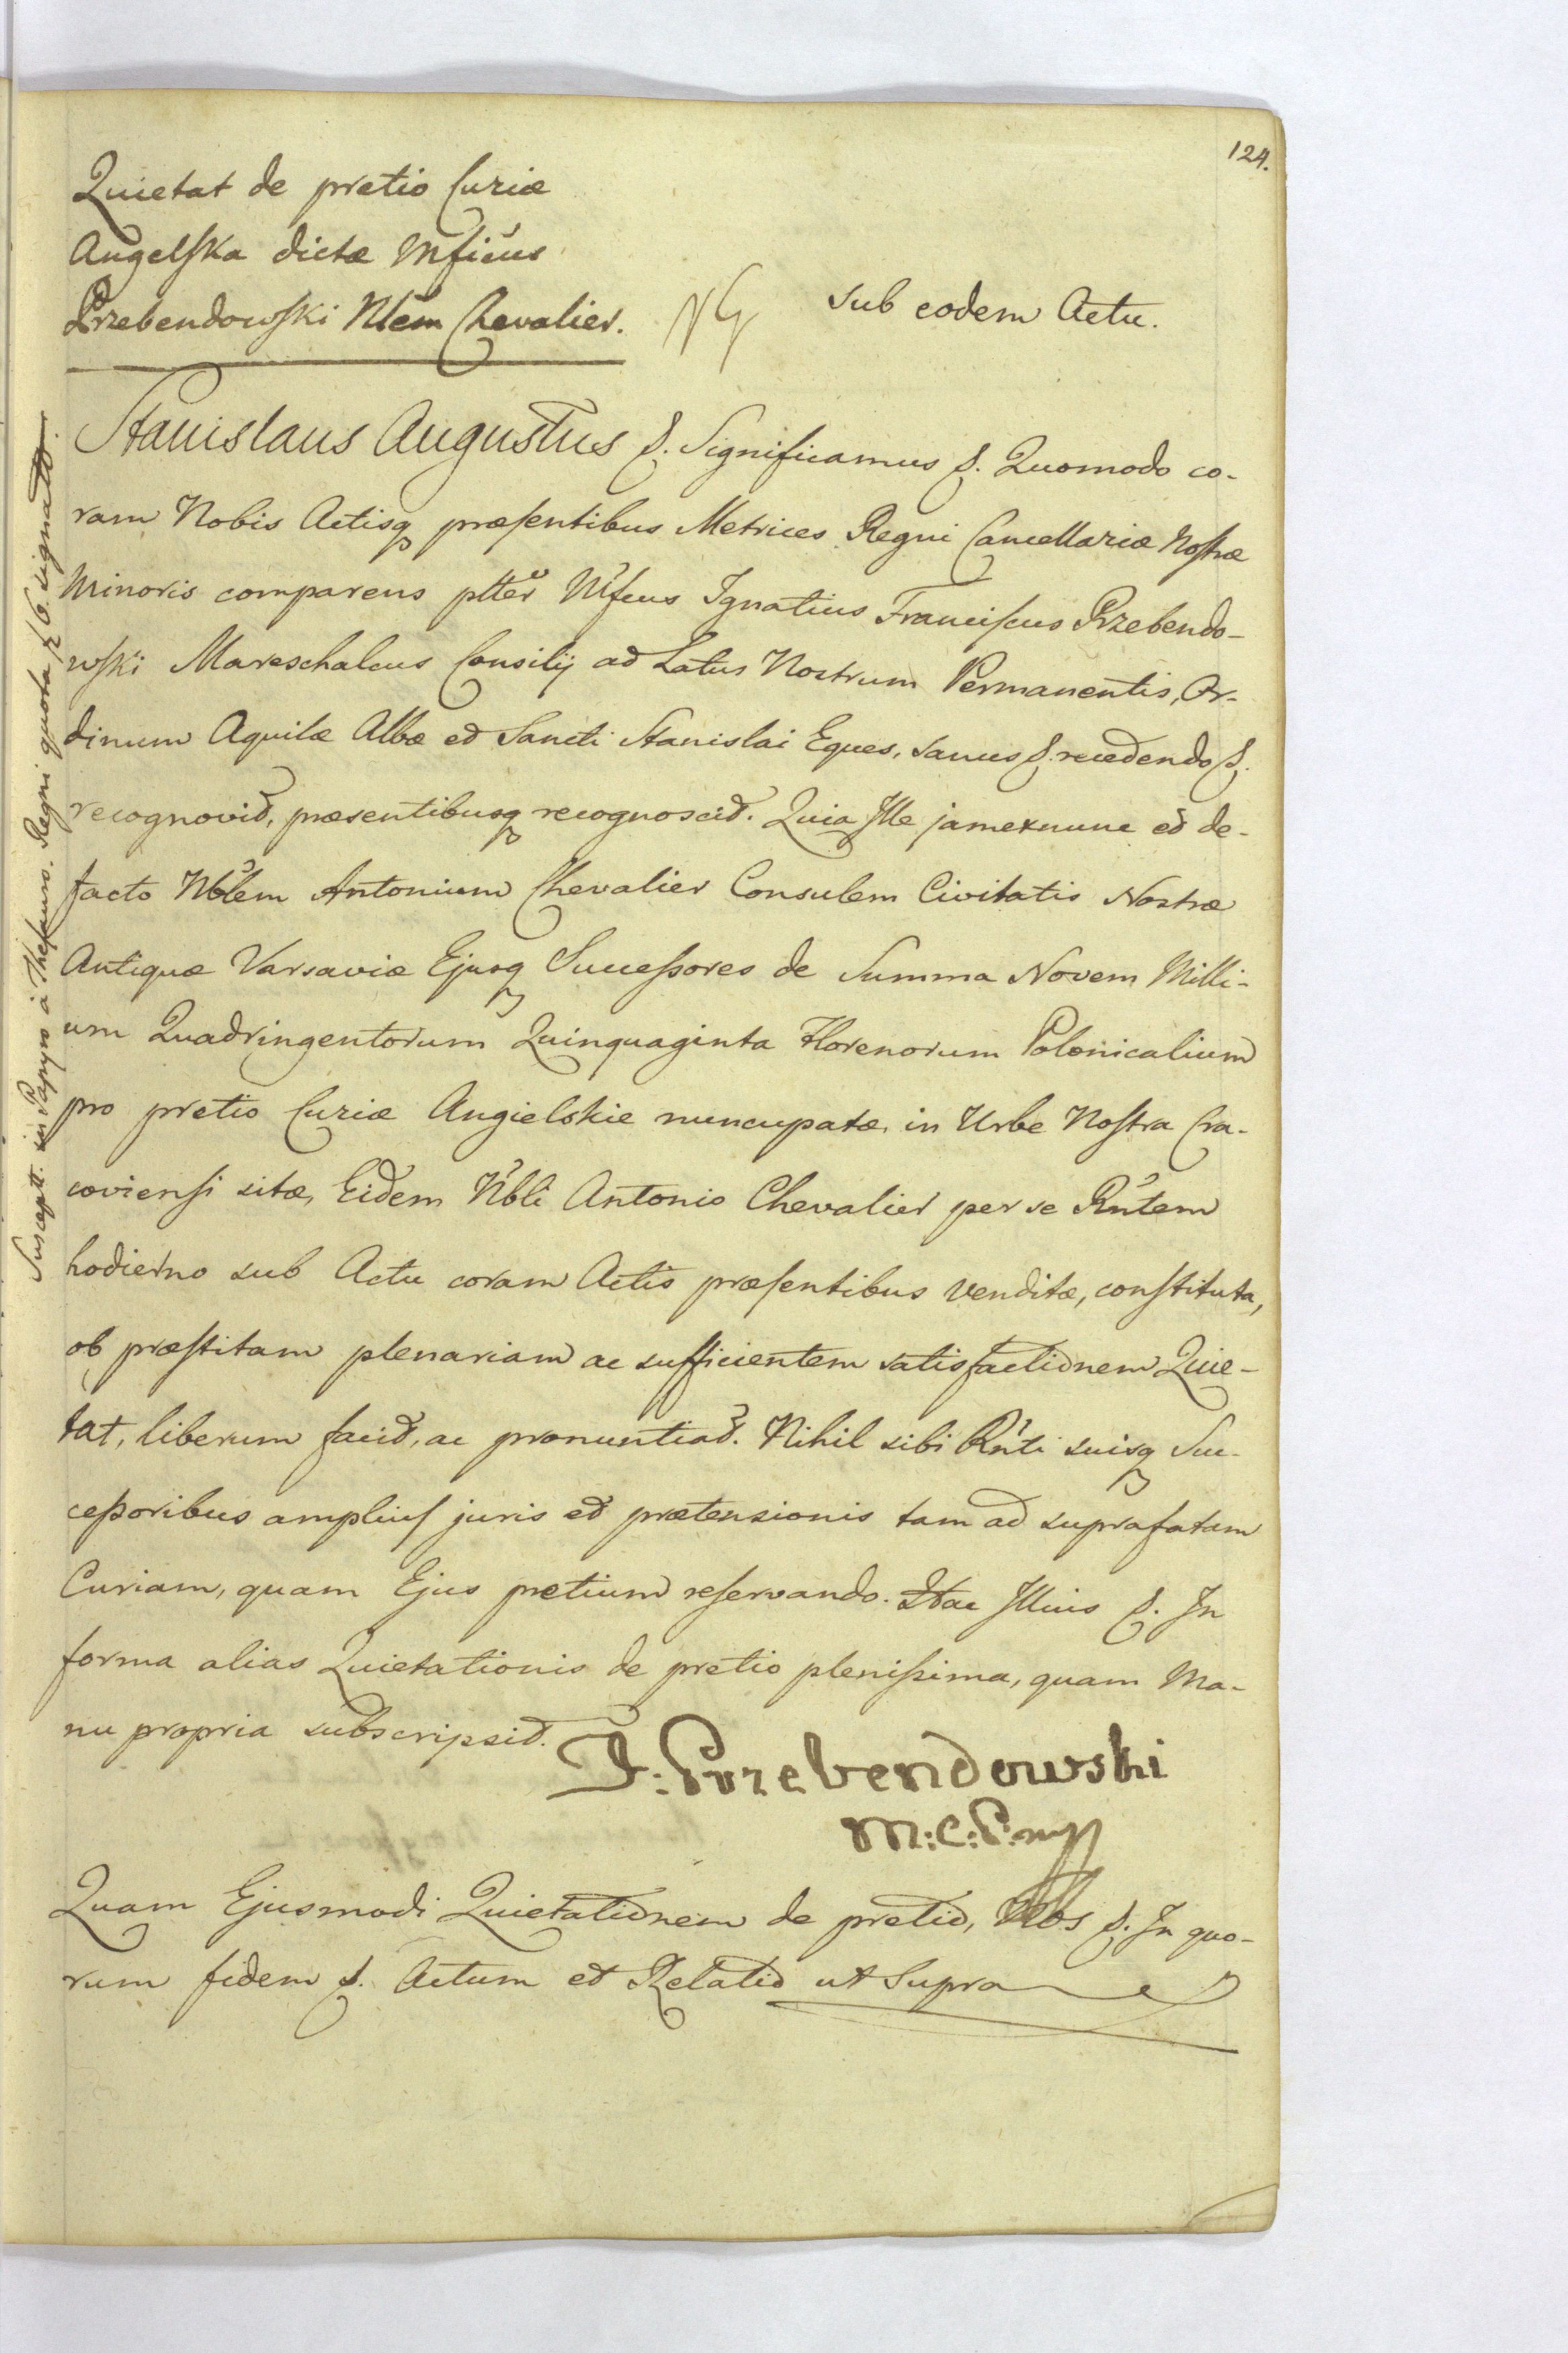 124.
Quietat de pretio Curiæ
Angelſka dictæ Mficus
Przebendowſki Nlem Chevalier.
NG
sub eodem Actu.
Stanislaus Augustus &. Significamus &. Quomodo co-
ram Nobis Actisq præſentibus Metrices Regni Cancellariæ Noſtræ
Minoris comparens pltter Mfcus Ignatius Franciſcus Przebendo-
wſki Mareschalcus Consilij ad Latus Nostrum Permanentis, Or-
dinum Aquilæ Albæ et Sancti Stanislai Eques, sanus &. recedendo &.
recognovit, præsentibusq recognoscit. Quia Ille jamexnunc et de-
facto Nblem Antonium Chevalier Consulem Civitatis Nostræ
Antiquæ Varsaviæ Ejusq Succeſsores de Summa Novem Milli-
um Quadringentorum Quinquaginta Florenorum Polonicalium
pro pretio Curiæ Angielskie nuncupatæ, in Urbe Noſtra Cra-
covienſi sitæ, Eidem Nbli Antonio Chevalier per se Rntem
hodierno sub Actu coram Actis præſentibus venditæ, conſtituta,
ob præſtitam plenariam ac sufficientem satisfactionem Quie-
tat, liberum facit, ac pronuntiat. Nihil sibi Rnti suisq Suc-
ceſsoribus ampliuſ juris et prætensionis tam ad suprafatam
Curiam, quam Ejus pretium reſervando. Hac Illius &. In
forma alias Quietationis de pretio pleniſsima, quam Ma-
nu propria subscripsit.
J: Przebendowski
M: C: P: mpp
Quam Ejusmodi Quietationem de pretio, Nos &. In quo-
rum fidem &. Actum et Relatio ut Supra
Suscept. in Papyro à Theſauro Regni quota f 6 signatto.